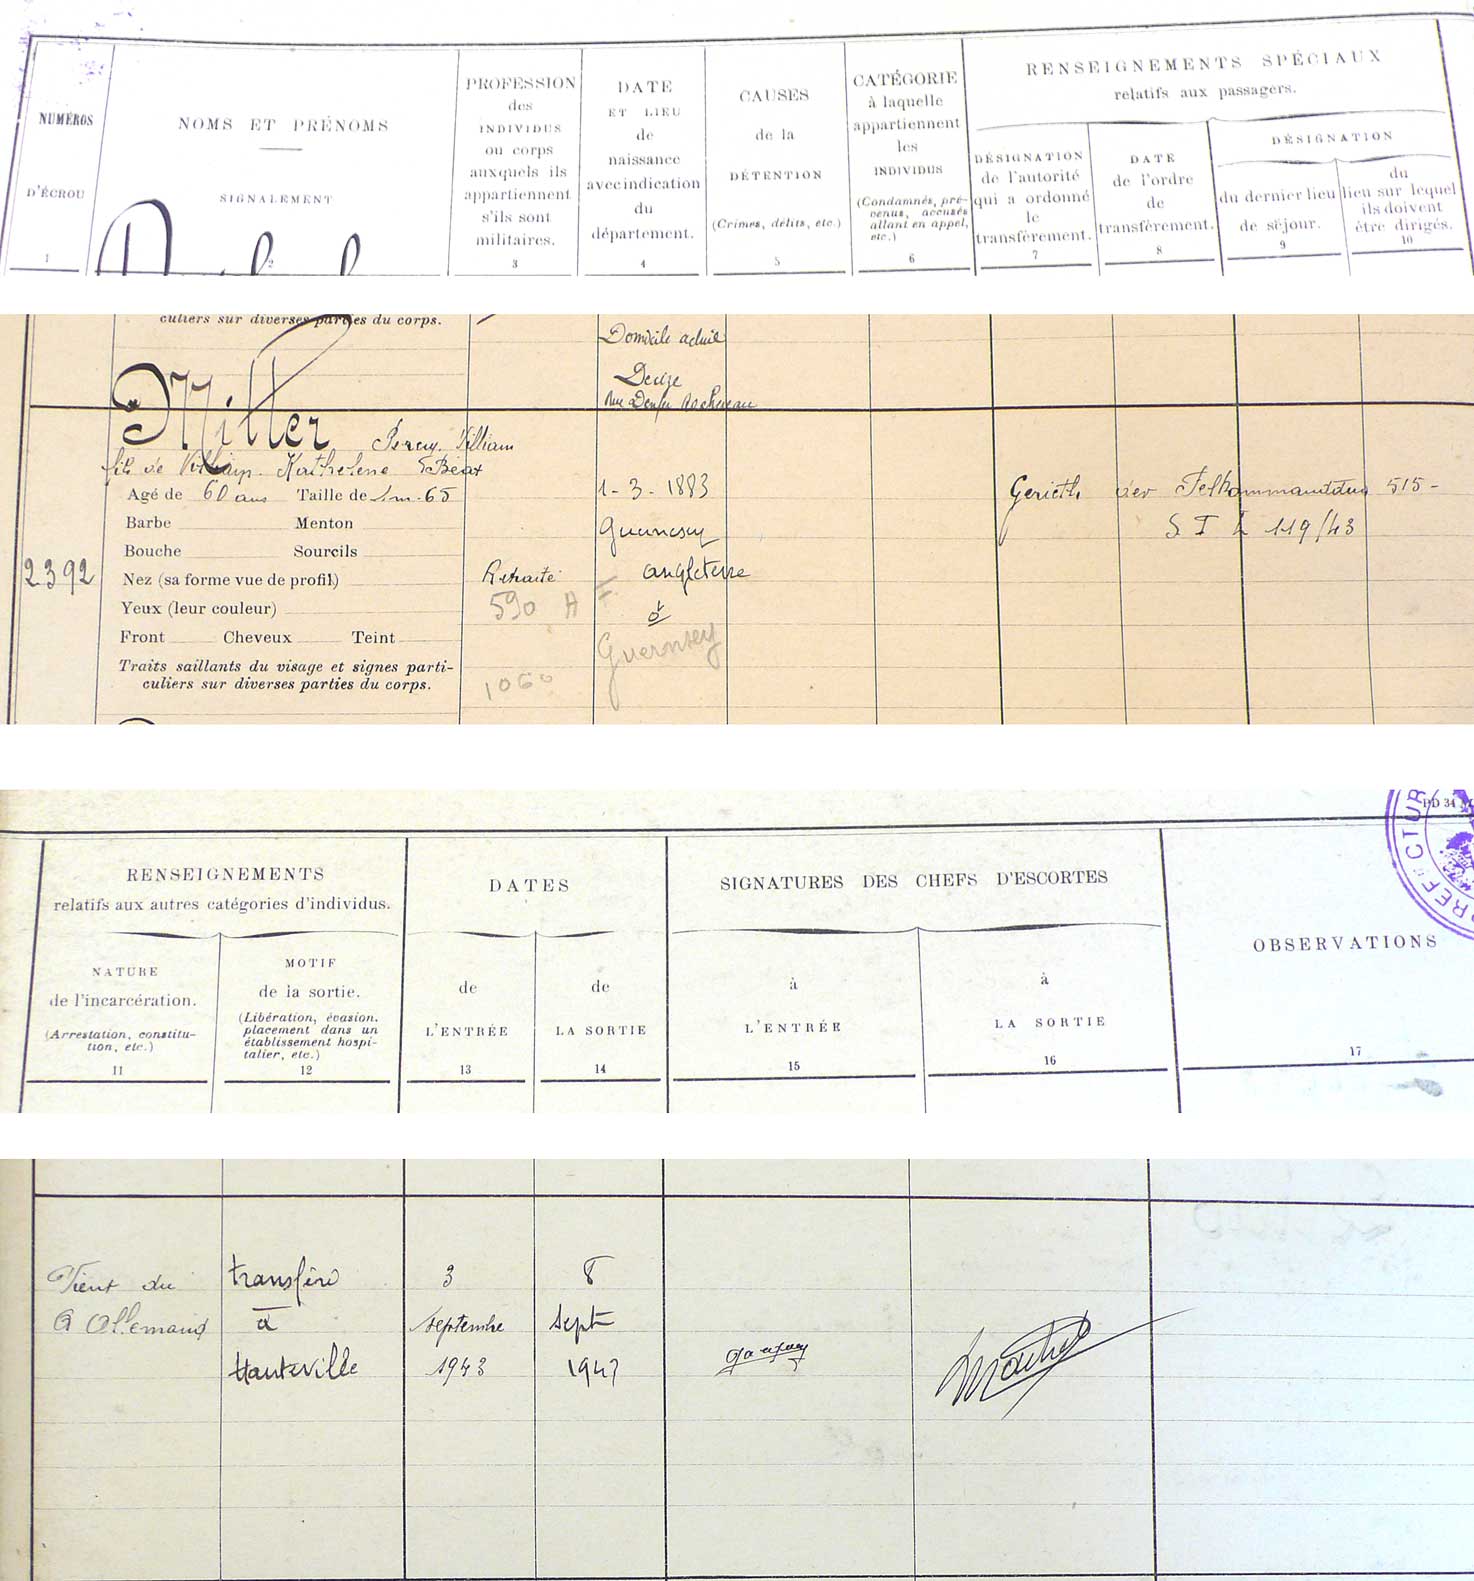 NUMÉROS
D'ÉCROU
1
NOMS ET PRÉNOMS
SIGNALEMENT
2
PROFESSION
des
INDIVIDUS
ou corps
auxquels ils
appartiennent
s'ils sont
militaires.
3
DATE
ET LIEU
de
naissance
avec indication
du
département.
4
CAUSES
de la
DÉTENTION
(Crimes, délits, etc.)
5
CATÉGORIE
à laquelle
appartiennent
les
INDIVIDUS
(Condamnés, pré-
venus, accusés
allant en appel,
etc.)
6
RENSEIGNEMENTS SPÉCIAUX
relatifs aux passagers.
DÉSIGNATION
de l'autorité
qui a ordonné
le
transfèrement.
7
DATE
de l'ordre
de
transfèrement.
8
DÉSIGNATION
du dernier lieu
de séjour.
9
du
lieu sur lequel
ils doivent
être dirigés.
10
culiers sur diverses parties du corps.
Domicile actuel
Decize
Rue Denfer Rochereau
2392
Miller Percy William
fils de William Katherene
Agé de 60 ans Taille de 1m.65
Barbe Menton
Bouche Sourcils
Nez (sa forme vue de profil)
Yeux (leur couleur)
Front Cheveux Teint
Traits saillants du visage et signes parti-
culiers sur diverses parties du corps.
Retraité
590 A F
1060
1-3-1883
Guernesey
Angleterre
Guernsey
der 515-
S T L 119/43
RENSEIGNEMENTS
relatifs aux autres catégories d'individus.
NATURE
de l'incarcération.
(Arrestation, constitu-
tion, etc.)
11
MOTIF
de la sortie.
(Libération, évasion.
placement dans un
établissement hospi-
talier, etc.)
12
DATES
de
L'ENTRÉE
13
de
LA SORTIE
14
SIGNATURES DES CHEFS D'ESCORTES
à
L'ENTRÉE
15
à
LA SORTIE
16
OBSERVATIONS
17
PD 34
PREFECTUR
Vient du
Q Allemand
transféré
à
Hauteville
3
septembre
1943
8
Sept
1943